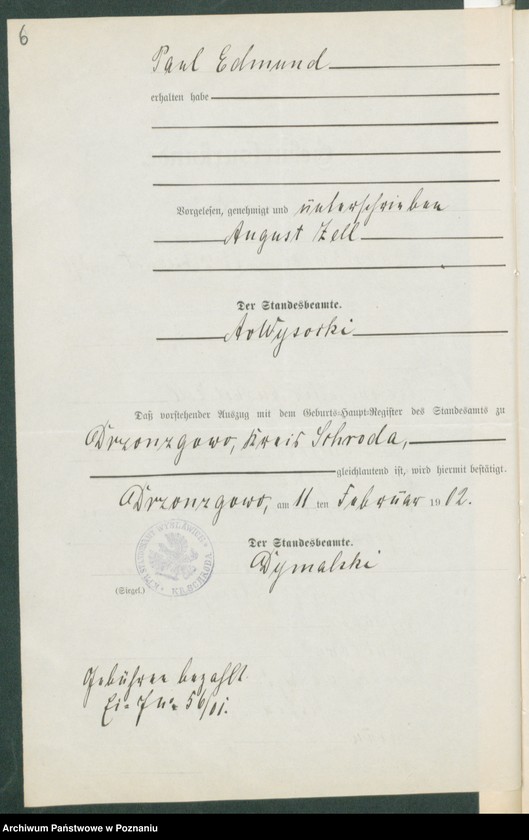 6
Paul Edmund
erhalten habe
Vorgelesen, genehmigt und unterschrieben
August Zell
Der Standesbeamte.
Daß vorstehender Auszug mit dem Geburts-Haupt-Register des Standesamts zu
Drzonzgowo, Kreis Schroda,
gleichlautend ist, wird hiermit bestätigt.
Drzonzgowo, am 11 ten Februar 1902.
Der Standesbeamte.
Dymalski
(Siegel.)
KR. SCHRODA
Gebühren bezahlt
56/01.
Archiwum Państwowe w Poznaniu